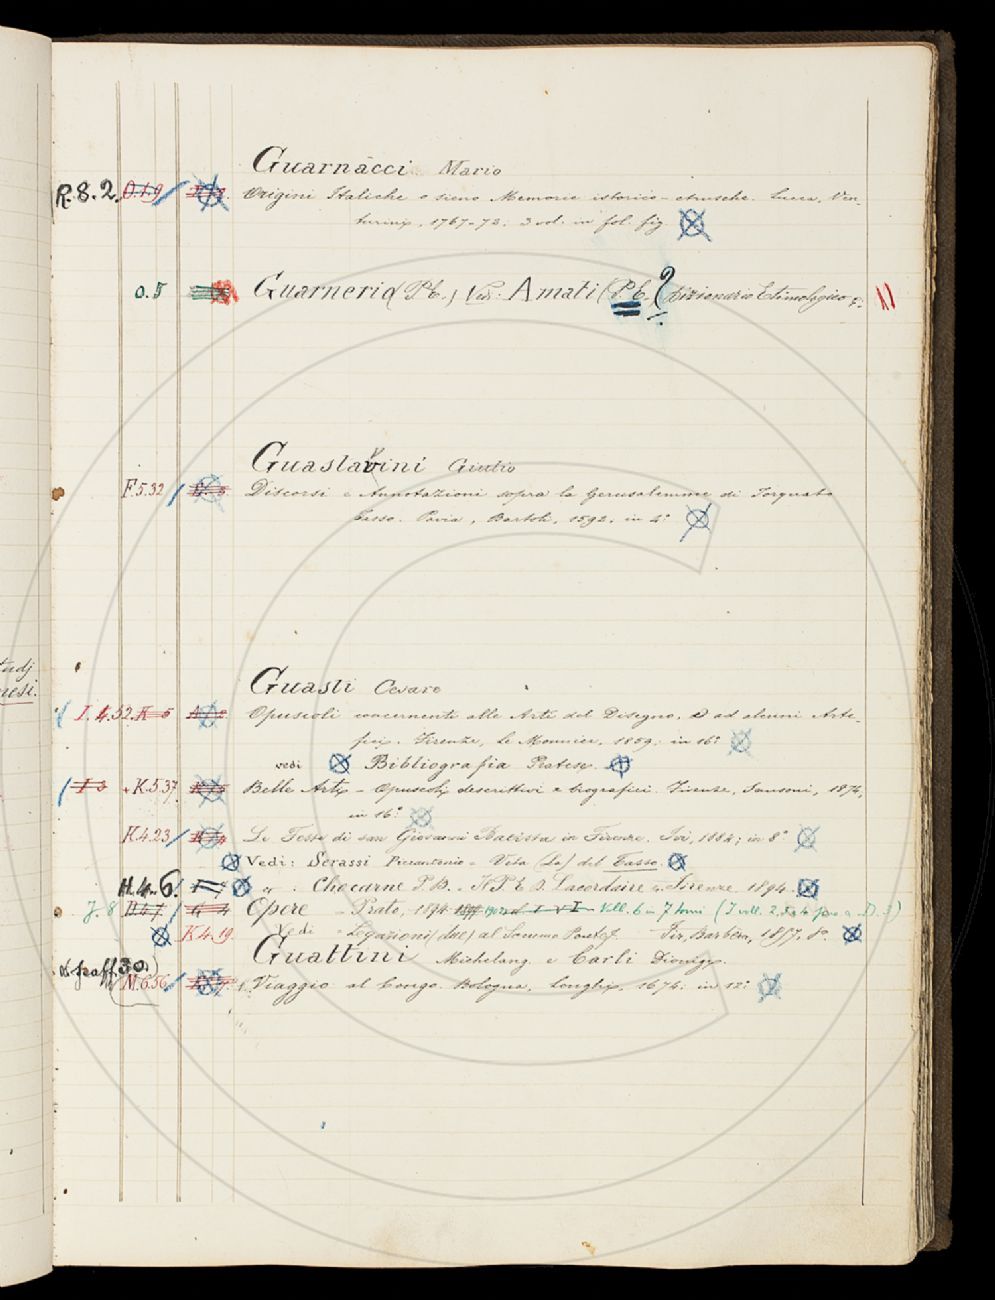 Guarnacci Mario
R.8.2. O.1.9 Origini Italiche o sieno Memorie istorico-etrusche. Lucca, Ven-
turinj, 1767-72. 3 vol. in fol. fig.
O.5 Guarnerio (P.E.) Ved: Amati (P.E. ? Dizionario Etimologico
Guastavini Giulio
F.5.32 Discorsi e Annotazioni sopra la Gerusalemme di Torquato
Tasso. Pavia, Bartoli, 1592. in 4°
tudj
nesi.
Guasti Cesare
I.4.52. K 5 Opuscoli concernenti alle Arti del Disegno, e ad alcuni Arte-
fici. Firenze, Le Monnier, 1859; in 16°
vedi Bibliografia Pratese.
I 3 K.5.37 Belle Arti - Opuscoli descrittivi e biografici. Firenze, Sansoni, 1874,
in 16°
K.4.23 Le Feste di san Giovanni Batista in Firenze. Ivi, 1884; in 8°
Vedi: Serassi Pierantonio - Vita (La) del Tasso.
H.4.6. " : Chocarne P.B. - Il P. E. D. Lacordaire - Firenze. 1894.
J.8 D.4.7 Opere - Prato, 1894 Voll. 6 in 7 tomi
K.4.19. Vedi - Legazioni (due) al Sommo Pontef. Fir, Barbèra, 1857, 8°.
Guattini Michelang. e Carli Dionigi.
30. N.6.56 Viaggio al Congo. Bologna, Longhi, 1674. in 12°